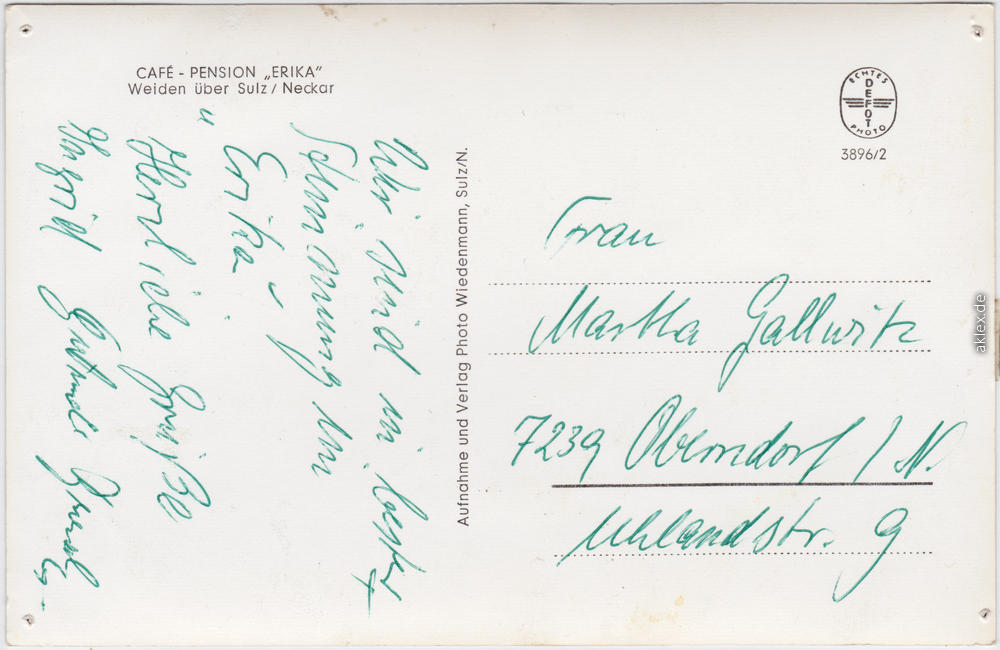 CAFÉ - PENSION „ERIKA"
Weiden über Sulz / Neckar
Wir sind in bester
Stimmung im
"Erika".
Herzliche Grüße
Ingrid
Aufnahme und Verlag Photo Wiedenmann, Sulz/N.
ECHTES
DEFOT
PHOTO
3896/2
Frau
Martha Gallwitz
7239 Oberndorf / N.
Uhlandstr. 9
aklex.de